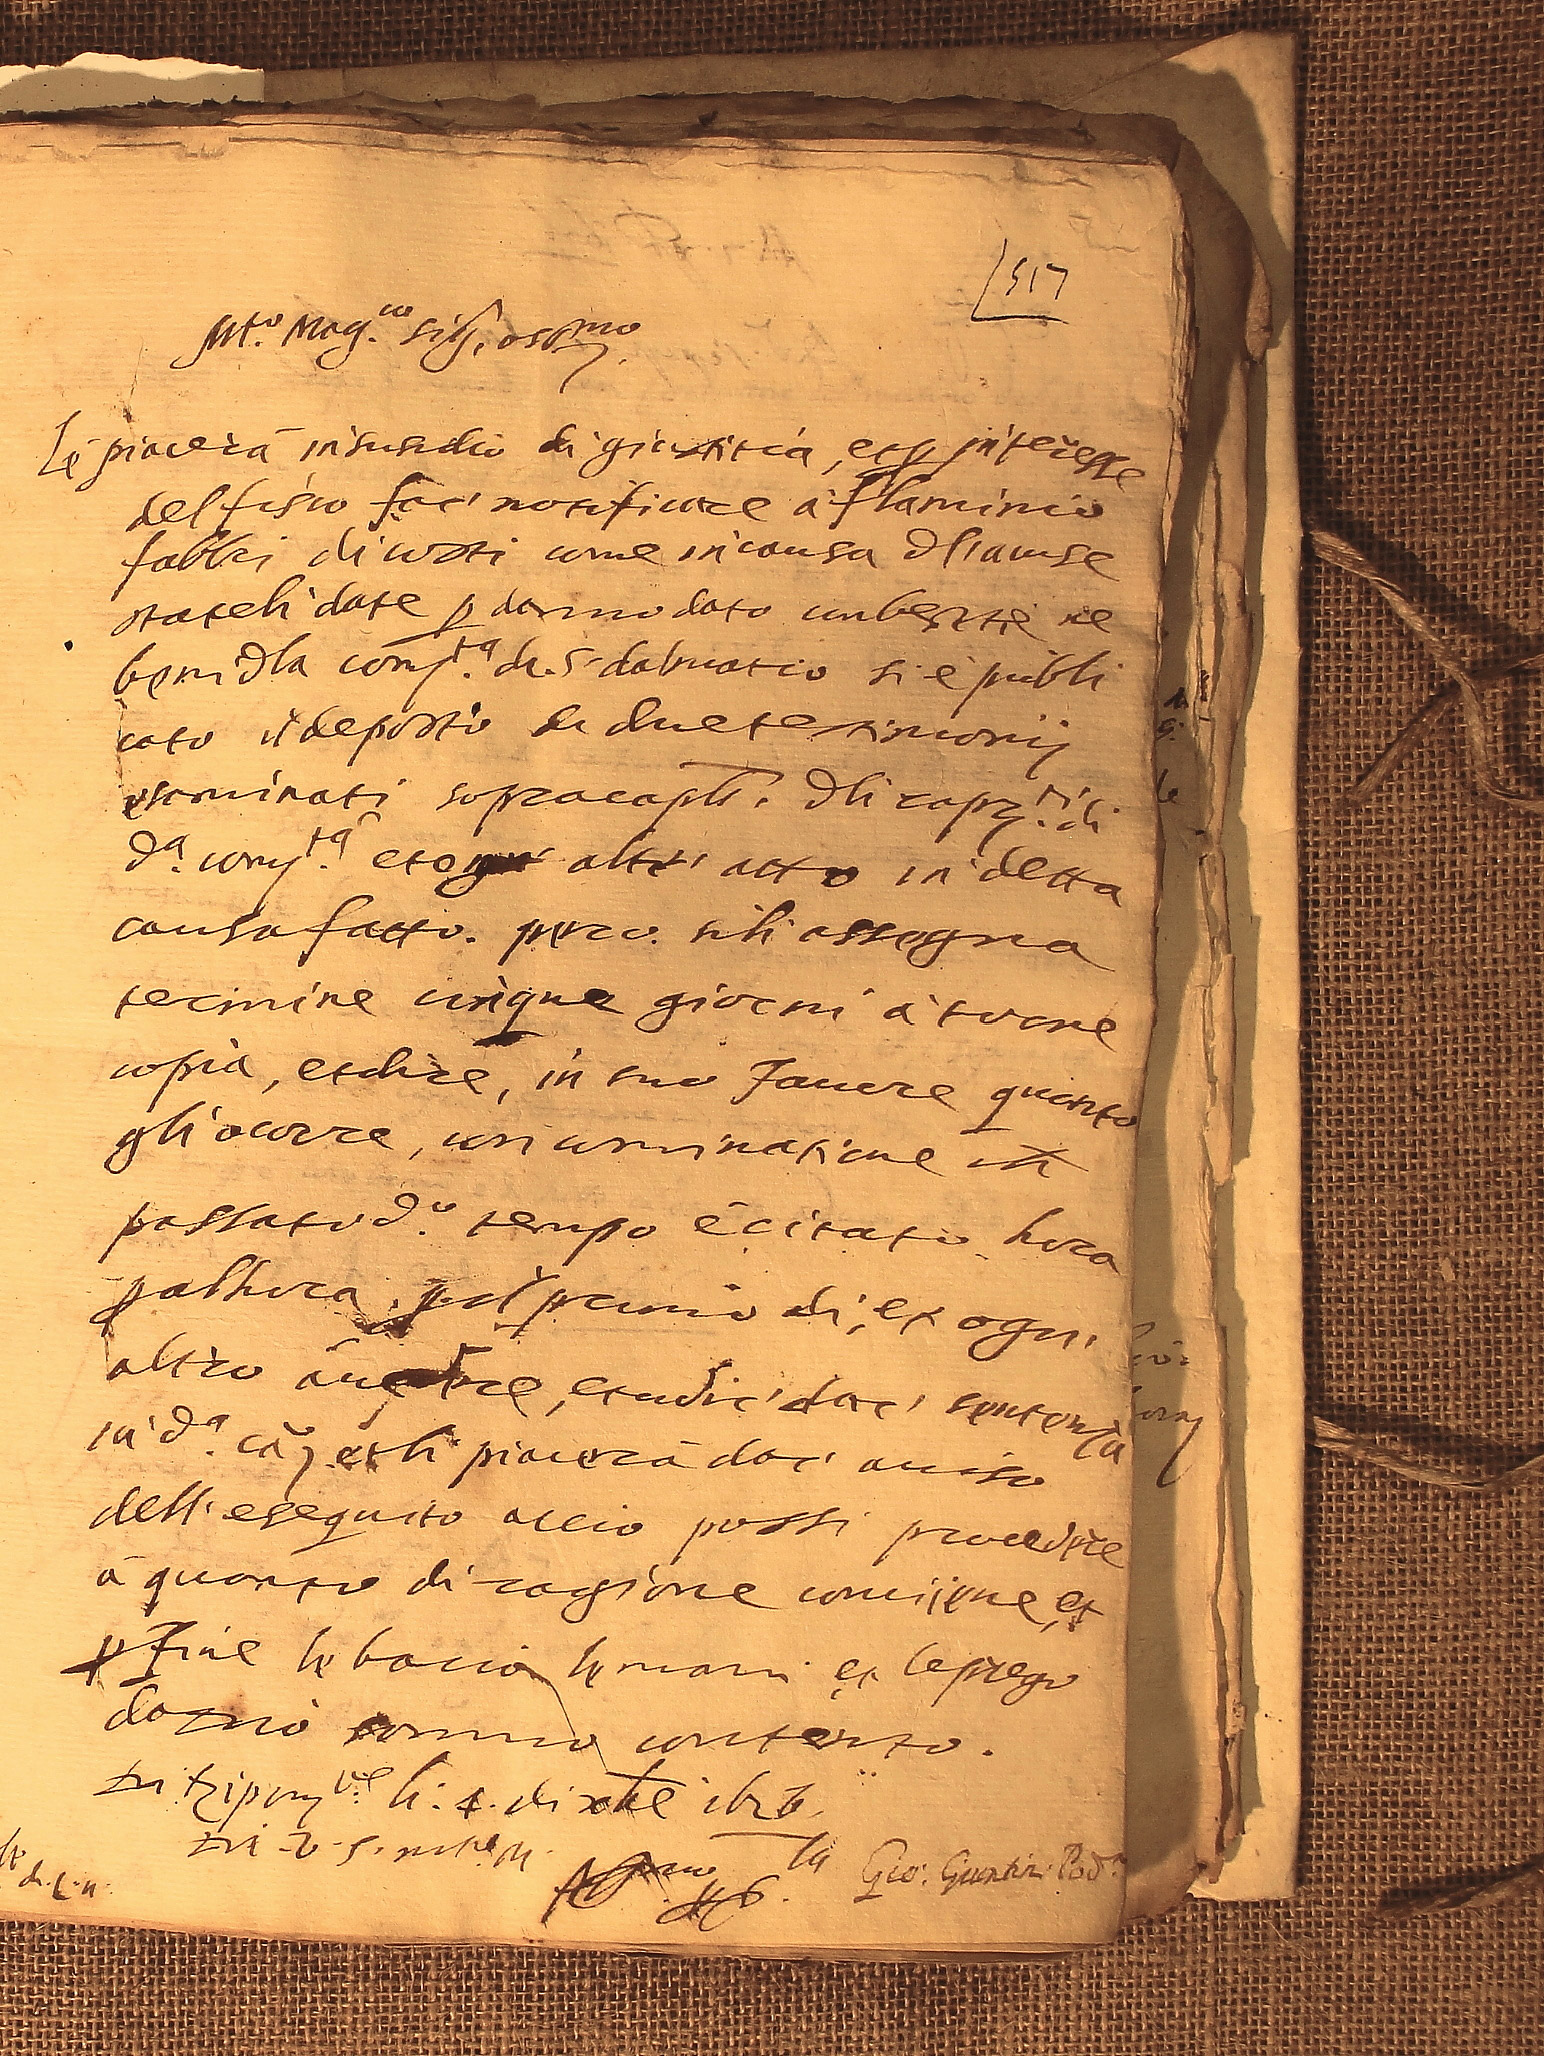 517
Mto. Mag.co sig.r oss.mo
Le piacerà in susidio di giustitia, et p interesse
del fisco far' notificare à flaminio
fabbri di costi come in causa dl'acuse
stateli date p danno dato con bestie ne
beni dla com.tà di S dalmatio si è publi
cato il deposto di due testimonij
esaminati sopra capli. dli rapp.ti di
da. com.tà et ogni altr' atto in detta
causa fatto. perco. seli assegna
termine cinque giorni à torre
copia, et dire, in suo favore quanto
gli ocorre, con cominatione ch
passato do. tempo è citato hora
p alhora pel primo di, et ogni
altro et udir' dar' sentenza
in da. cã, et li piacerà dar' aviso
dell' eseguito accio possi procedere
à quanto di ragione conviene, et
p fine le bacio le mani et le prego
da N S ogni contento.
li: 4. di
di V. S. molto M.
Gio: Guntini Pod.a